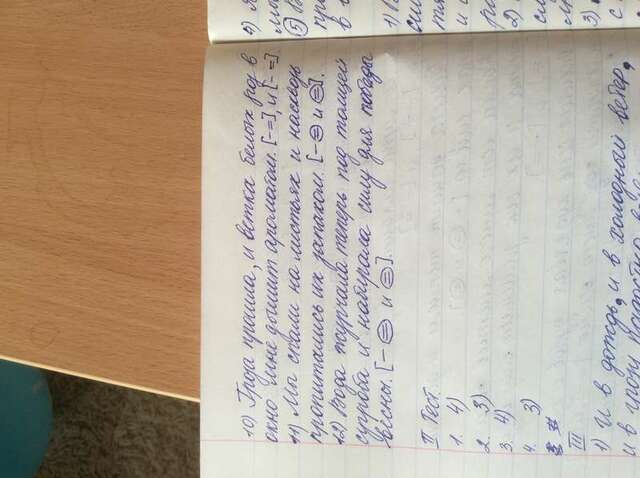 10) Гроза прошла, и ветка белых роз в
окно мне дышит ароматом. [- =], и [- =].
11) Мы спали на листьях и насквозь
пропитались их запахом. [- = и =].
12) Вода журчала теперь под толщей
сугроба и набирала силу для победы
весны. [- = и =].
II Тест.
1. 4)
2. 3)
3. 4)
4. 3)
III
1) И в дождь, и в холодный ветер,
и в